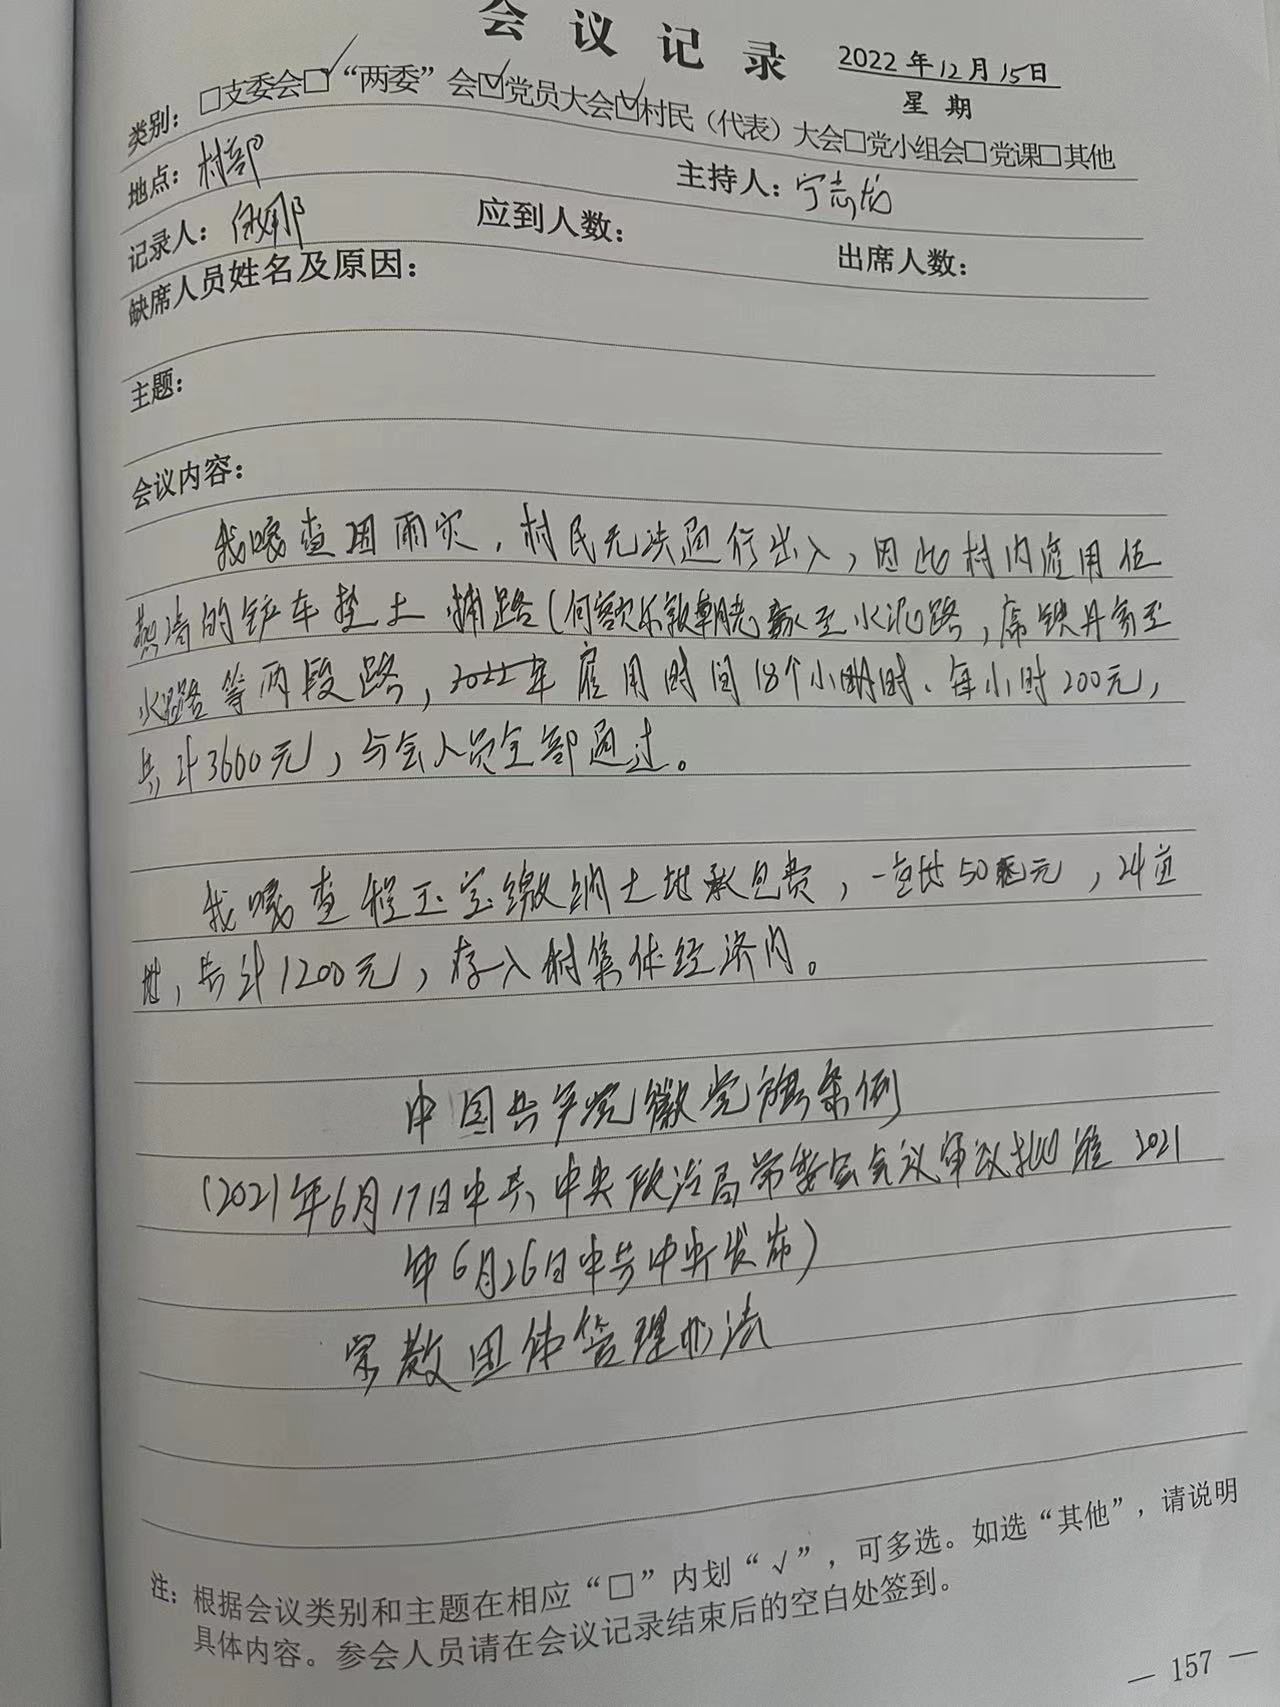 会议记录
2022年12月15日
星期
类别：□支委会☑“两委”会☑党员大会☑村民（代表）大会□党小组会□党课□其他
地点：村部 主持人：宁志龙
记录人： 应到人数： 出席人数：
缺席人员姓名及原因：
主题：
会议内容：
我嘎查因雨灾，村民无法通行出入，因此村内雇用伍
的铲车垫土铺路（至水泥路，席铁丹家至
水泥路等两段路，2022年雇用时间18个小时，每小时200元，
共计3600元），与会人员全部通过。
我嘎查程玉宝缴纳土地承包费，一亩地50元，24亩
地，共计1200元，存入村集体经济内。
中国共产党党徽党旗条例
（2021年6月17日中共中央政治局常委会会议审议批准 2021
年6月26日中共中央发布）
宗教团体管理办法
注：根据会议类别和主题在相应“□”内划“√”，可多选。如选“其他”，请说明
具体内容。参会人员请在会议记录结束后的空白处签到。
— 157 —